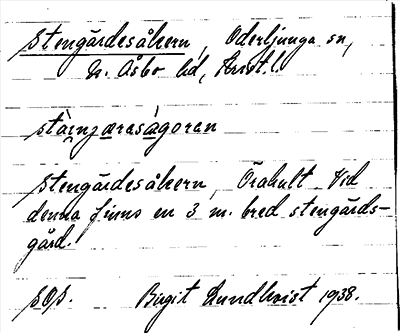 Stengärdesåkern, Oderljunga sn,
N. Åsbo hd, Krist. l.
Stengärdesåkern, Örahult. Vid
denna finns en 3 m. bred stengärds-
gård.
Birgit Lundkvist 1938.